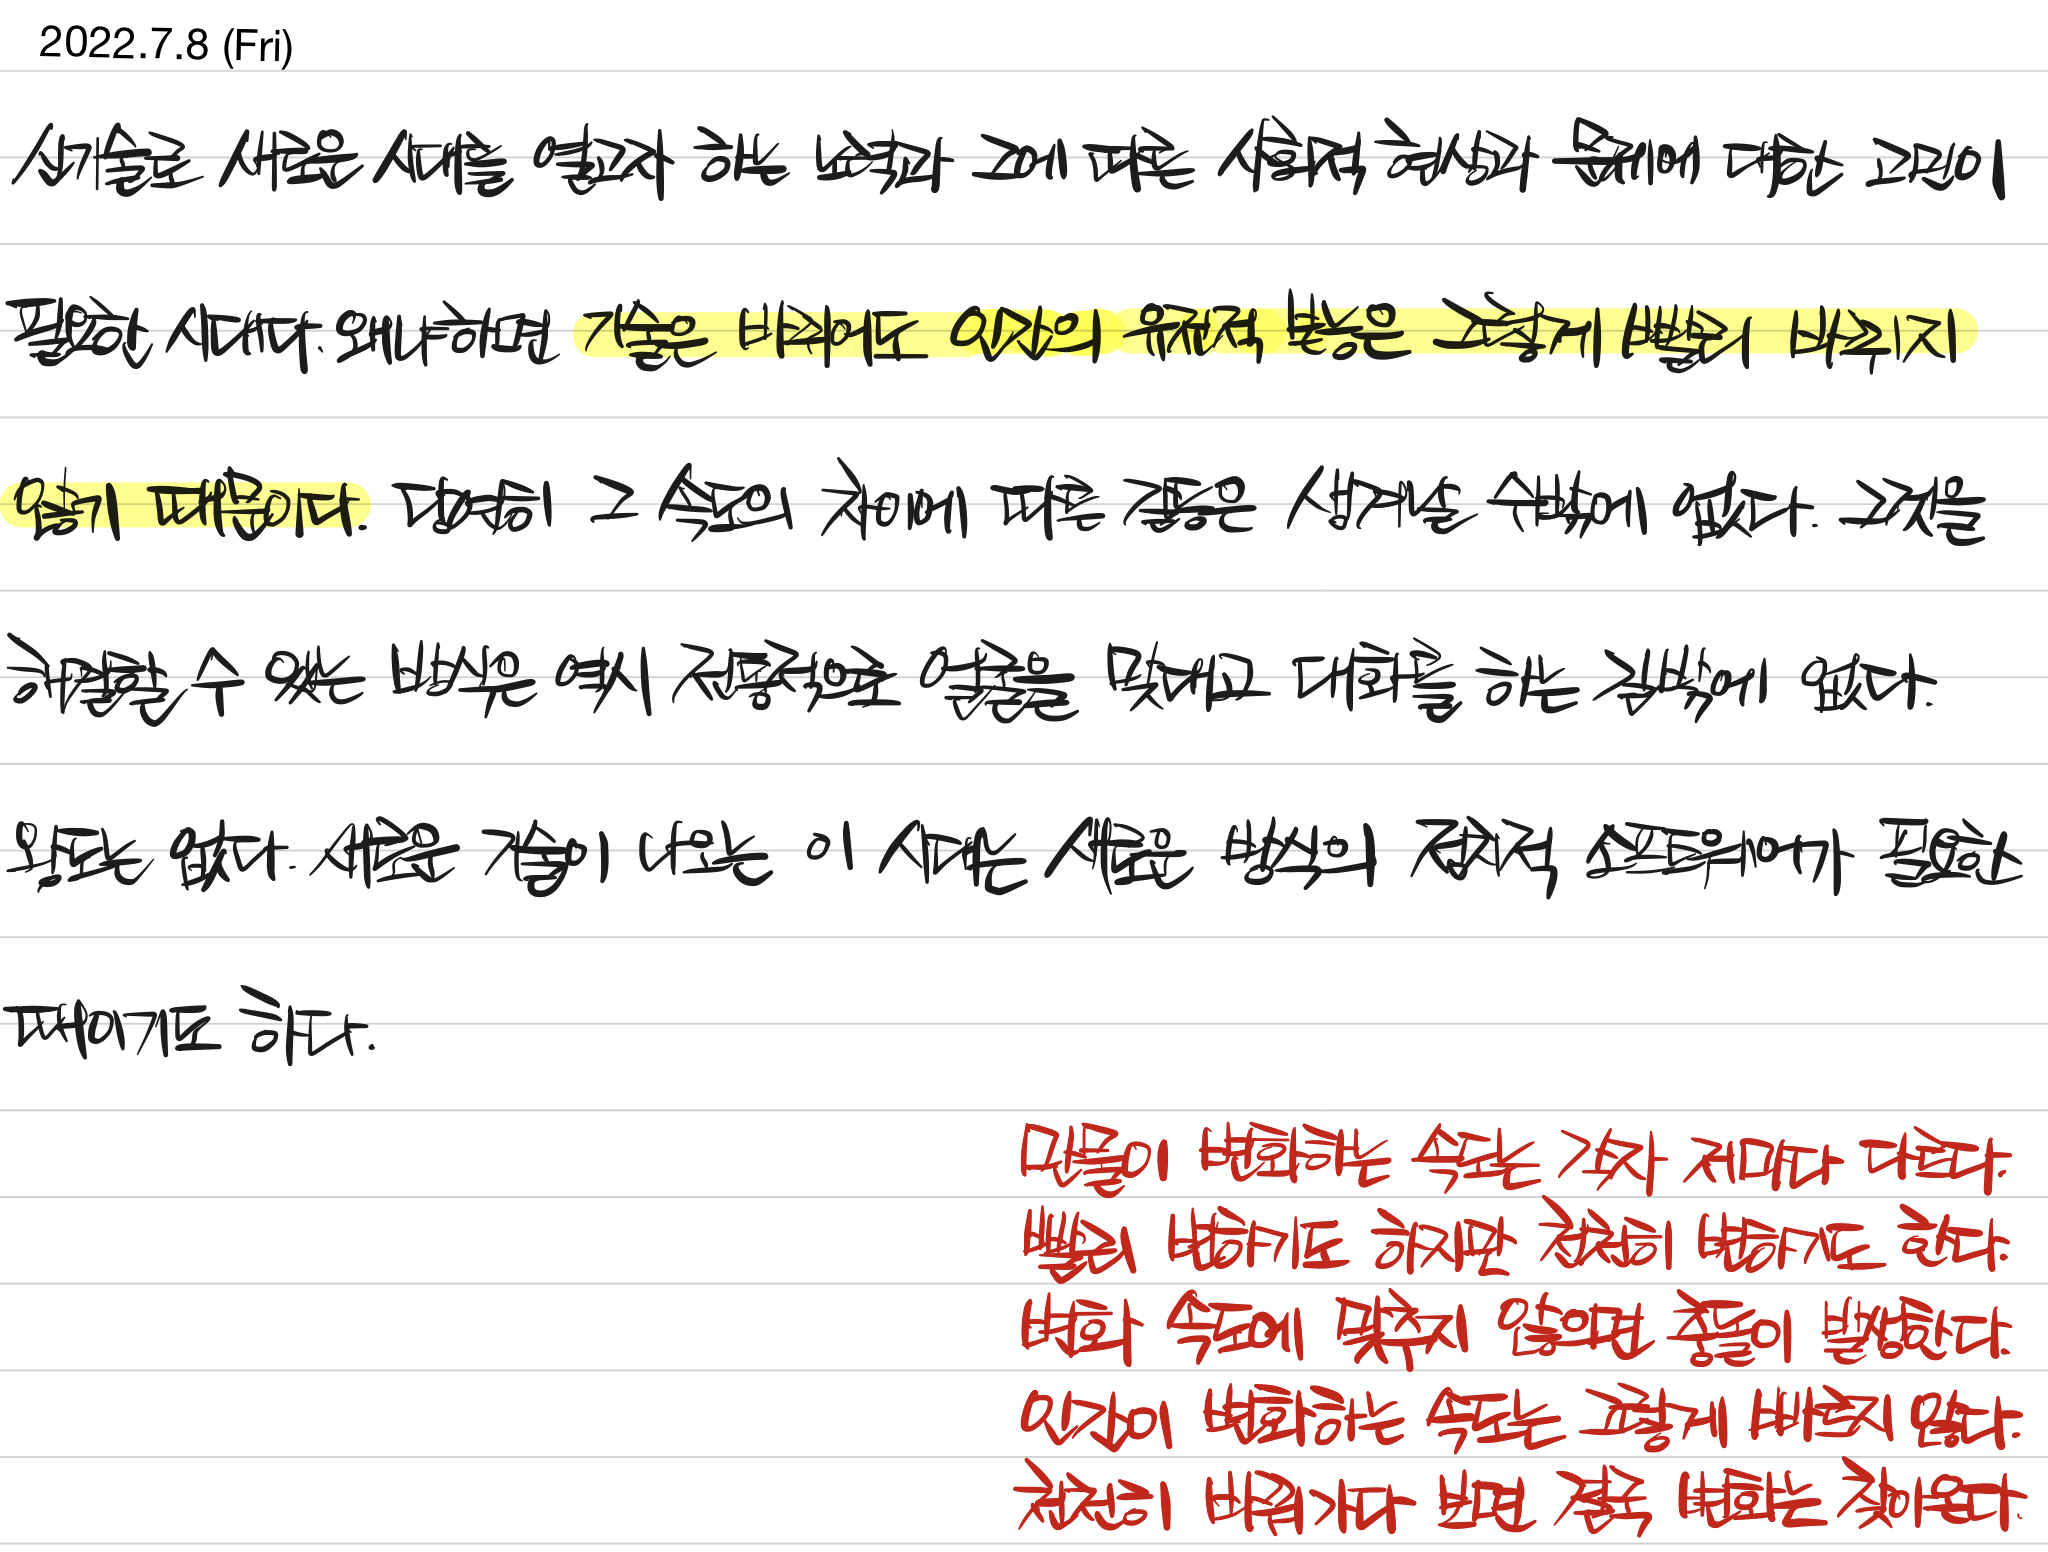 2022.7.8 (Fri)
신기술로 새로운 시대를 열고자 하는 노력과 그에 따른 사회적 현상과 문제에 대한 고민이
필요한 시대다. 왜냐하면 기술은 바뀌어도 인간의 유전적 본능은 그렇게 빨리 바뀌지
않기 때문이다. 당연히 그 속도의 차이에 따른 갈등은 생겨날 수밖에 없다. 그것을
해결할 수 있는 방식은 역시 전통적으로 얼굴을 맞대고 대화를 하는 길밖에 없다.
왕도는 없다. 새로운 기술이 나오는 이 시대는 새로운 방식의 정치적 소프트웨어가 필요한
때이기도 하다.
만물이 변화하는 속도는 각자 저마다 다르다.
빨리 변하기도 하지만 천천히 변하기도 한다.
변화 속도에 맞추지 않으면 충돌이 발생한다.
인간이 변화하는 속도는 그렇게 빠르지 않다.
천천히 바뀌가다 보면 결국 변화는 찾아온다.